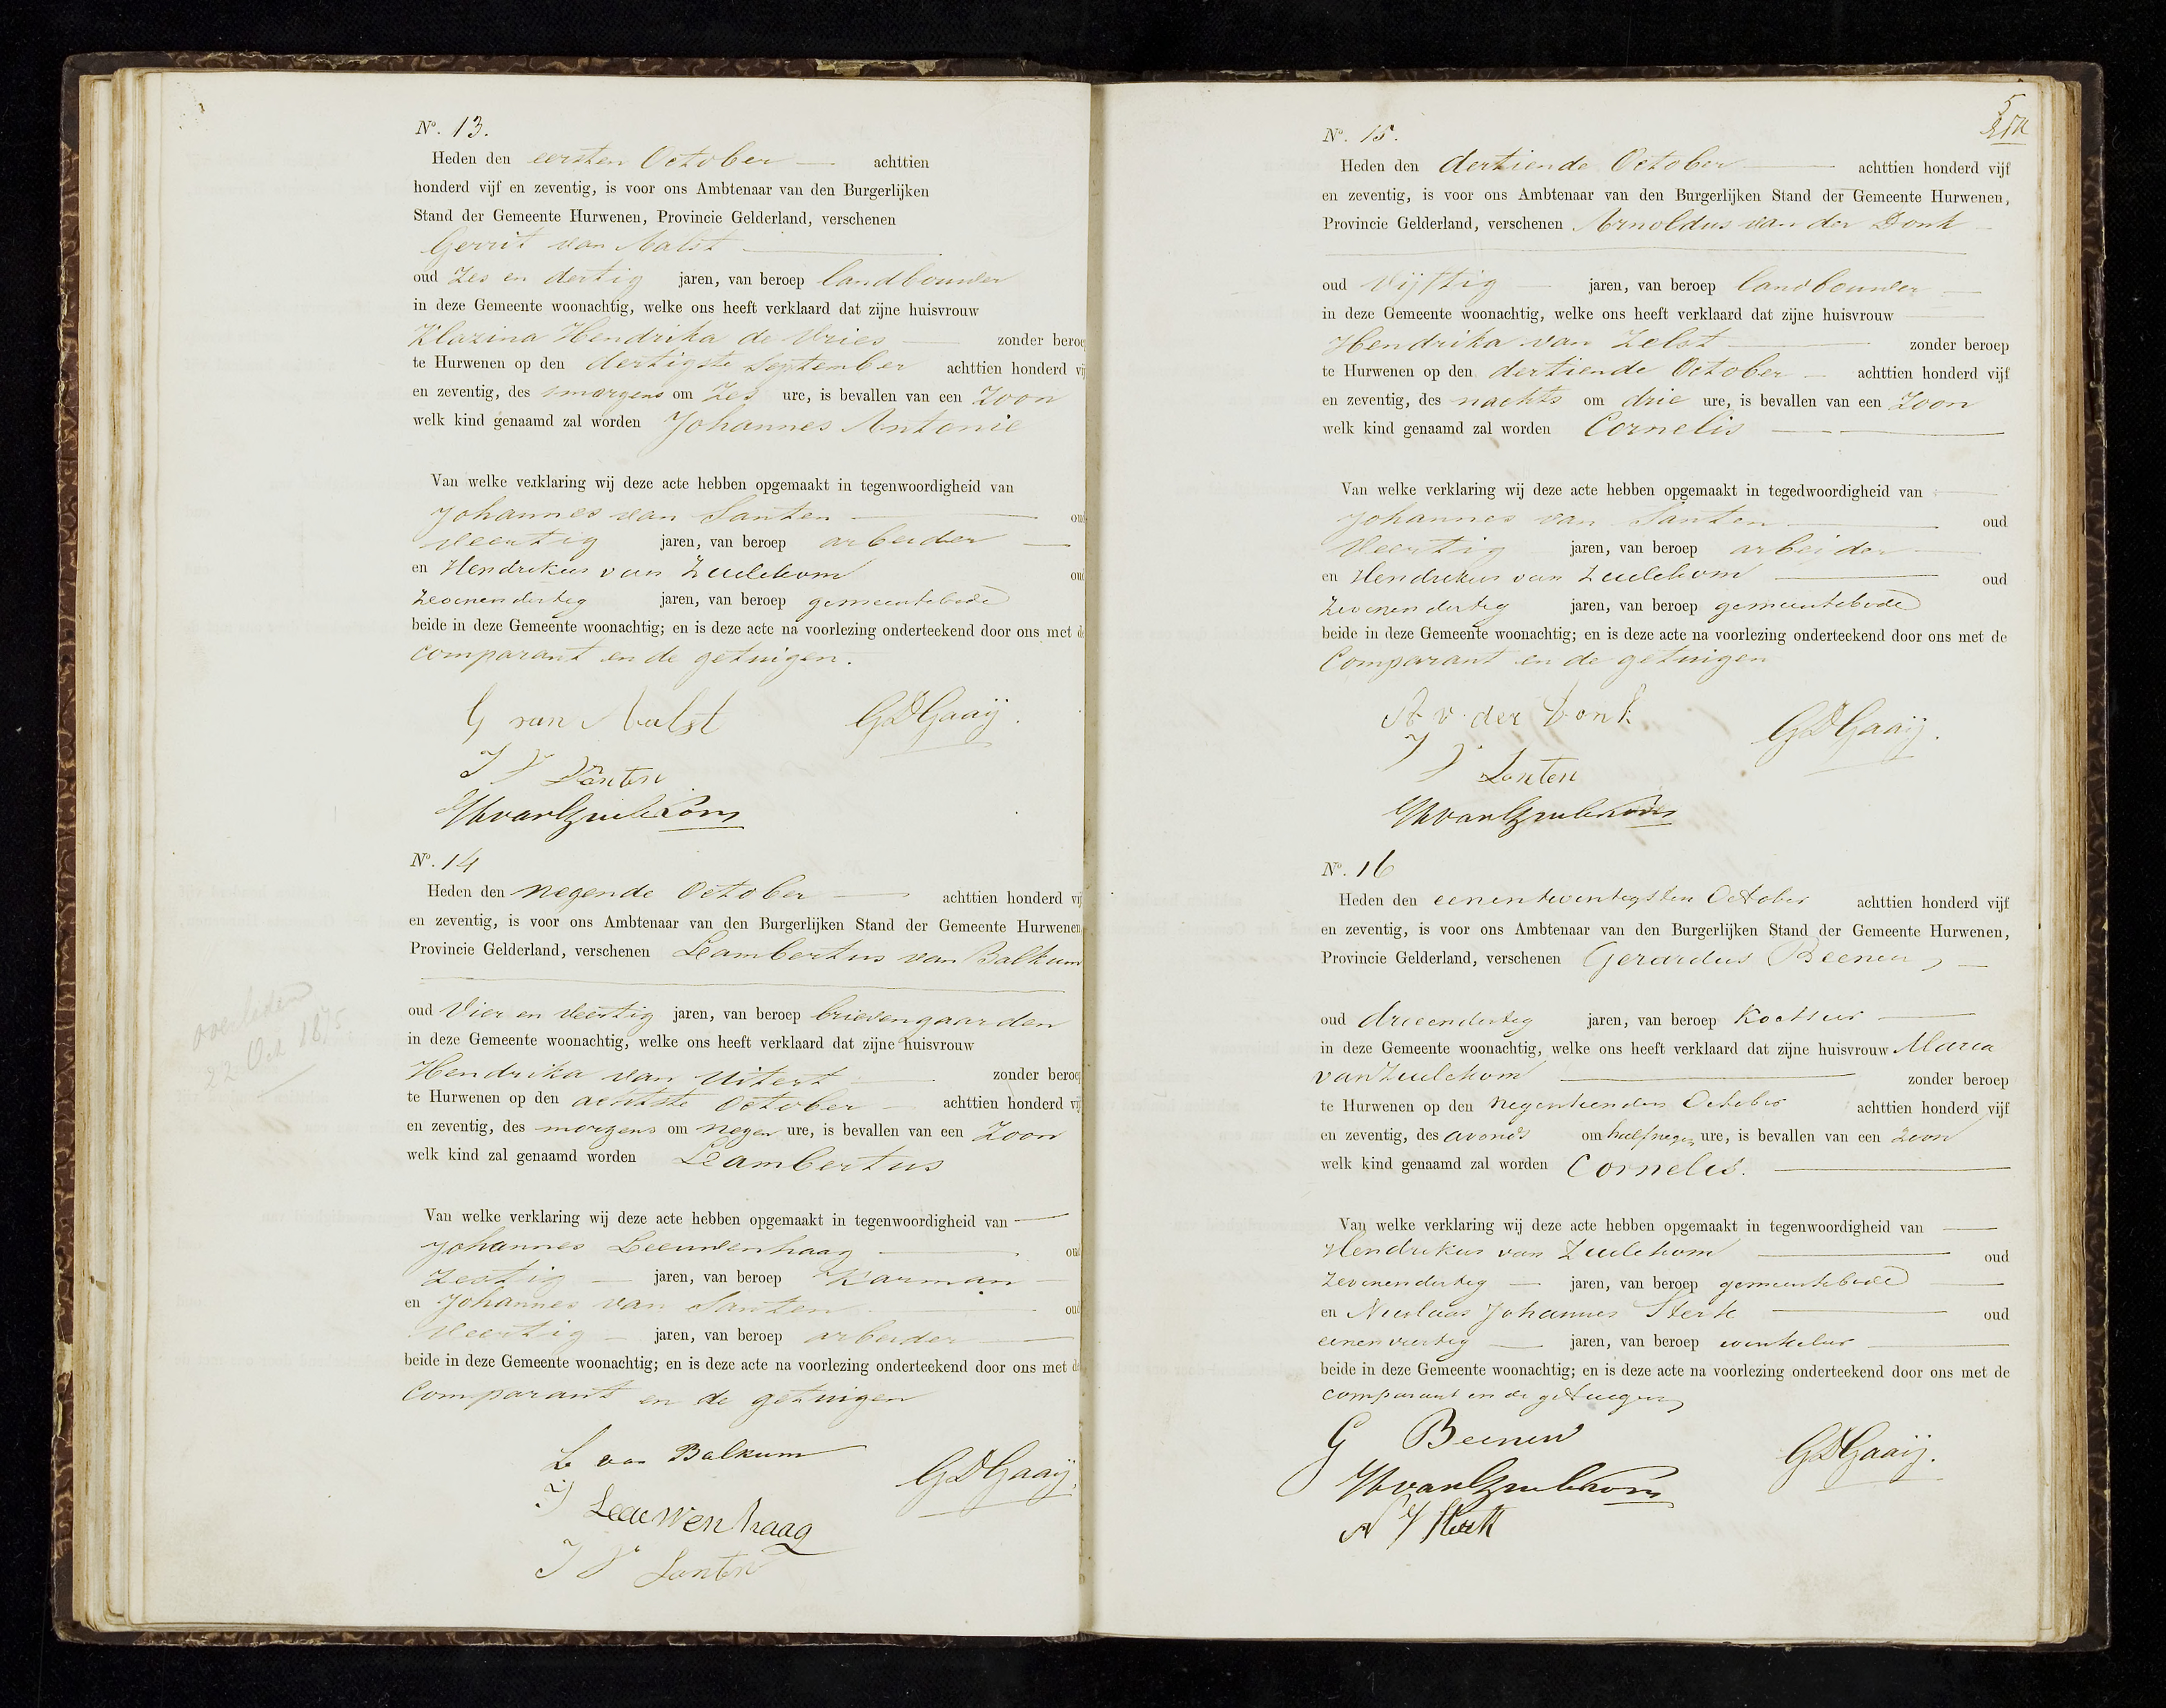 No. 13.
Heden den eersten October achttien
honderd vijf en zeventig, is voor ons Ambtenaar van den Burgerlijken
Stand der Gemeente Hurwenen, Provincie Gelderland, verschenen
Gerrit van Aalst
oud Zes en dertig jaren, van beroep landbouwer
in deze Gemeente woonachtig, welke ons heeft verklaard dat zijne huisvrouw
Klazina Hendrika de Vries zonder beroep
te Hurwenen op den dertigste September achttien honderd vij
en zeventig, des smorgens om Zes ure, is bevallen van een Zoon
welk kind genaamd zal worden Johannes Antonie
Van welke verklaring wij deze acte hebben opgemaakt in tegenwoordigheid van
Johannes van Santen oud
Veertig jaren, van beroep arbeider
en Hendrikus van Zuilekom oud
Zevenendertig jaren, van beroep gemeentebode
beide in deze Gemeente woonachtig; en is deze acte na voorlezing onderteekend door ons met de
comparant en de getuigen.
G van Aalst GDGaaij.
J V Santen
HvanZuilekom
No. 14
Heden den negende October achttien honderd vij
en zeventig, is voor ons Ambtenaar van den Burgerlijken Stand der Gemeente Hurwenen
Provincie Gelderland, verschenen Lambertus van Balkum
oud Vier en Veertig jaren, van beroep brievengaarder
in deze Gemeente woonachtig, welke ons heeft verklaard dat zijne huisvrouw
Hendrika van Uitert zonder beroep
te Hurwenen op den achtste October achttien honderd vij
en zeventig, des morgens om negen ure, is bevallen van een Zoon
welk kind zal genaamd worden Lambertus
overleden
22 Oct 1875
Van welke verklaring wij deze acte hebben opgemaakt in tegenwoordigheid van
Johannes Leeuwenhaag oud
Zestig jaren, van beroep Karman
en Johannes van Santen oud
Veertig jaren, van beroep arbeider
beide in deze Gemeente woonachtig; en is deze acte na voorlezing onderteekend door ons met de
Comparant en de getuigen
L van Balkum GDGaaij.
J Leeuwenhaag
J V Santen
5
No. 15.
Heden den dertiende October achttien honderd vijf
en zeventig, is voor ons Ambtenaar van den Burgerlijken Stand der Gemeente Hurwenen,
Provincie Gelderland, verschenen Arnoldus van der Donk
oud Vijftig jaren, van beroep landbouwer
in deze Gemeente woonachtig, welke ons heeft verklaard dat zijne huisvrouw
Hendrika van Zelst zonder beroep
te Hurwenen op den dertiende October achttien honderd vijf
en zeventig, des nachts om drie ure, is bevallen van een Zoon
welk kind genaamd zal worden Cornelis
Van welke verklaring wij deze acte hebben opgemaakt in tegedwoordigheid van
Johannes van Santen oud
Veertig jaren, van beroep arbeider
en Hendrikus van Zuilekom oud
Zevenendertig jaren, van beroep gemeentebode
beide in deze Gemeente woonachtig; en is deze acte na voorlezing onderteekend door ons met de
Comparant en de getuigen
A v der Donk GDGaaij.
J V Santen
HvanZuilekom
No. 16
Heden den eenentwintigsten October achttien honderd vijf
en zeventig, is voor ons Ambtenaar van den Burgerlijken Stand der Gemeente Hurwenen,
Provincie Gelderland, verschenen Gerardus Beenen
oud drieendertig jaren, van beroep Koetsier
in deze Gemeente woonachtig, welke ons heeft verklaard dat zijne huisvrouw Maria
van Zuilekom zonder beroep
te Hurwenen op den negentienden October achttien honderd vijf
en zeventig, des avonds om half negen ure, is bevallen van een zoon
welk kind genaamd zal worden Cornelis.
Van welke verklaring wij deze acte hebben opgemaakt in tegenwoordigheid van
Hendrikus van Zuilekom oud
Zevenendertig jaren, van beroep gemeentebode
en Nicolaas Johannes Sterk oud
eenenveertig jaren, van beroep winkelier
beide in deze Gemeente woonachtig; en is deze acte na voorlezing onderteekend door ons met de
comparant en de getuigen
G Beenen GDGaaij.
HvanZuilekom
N J Sterk